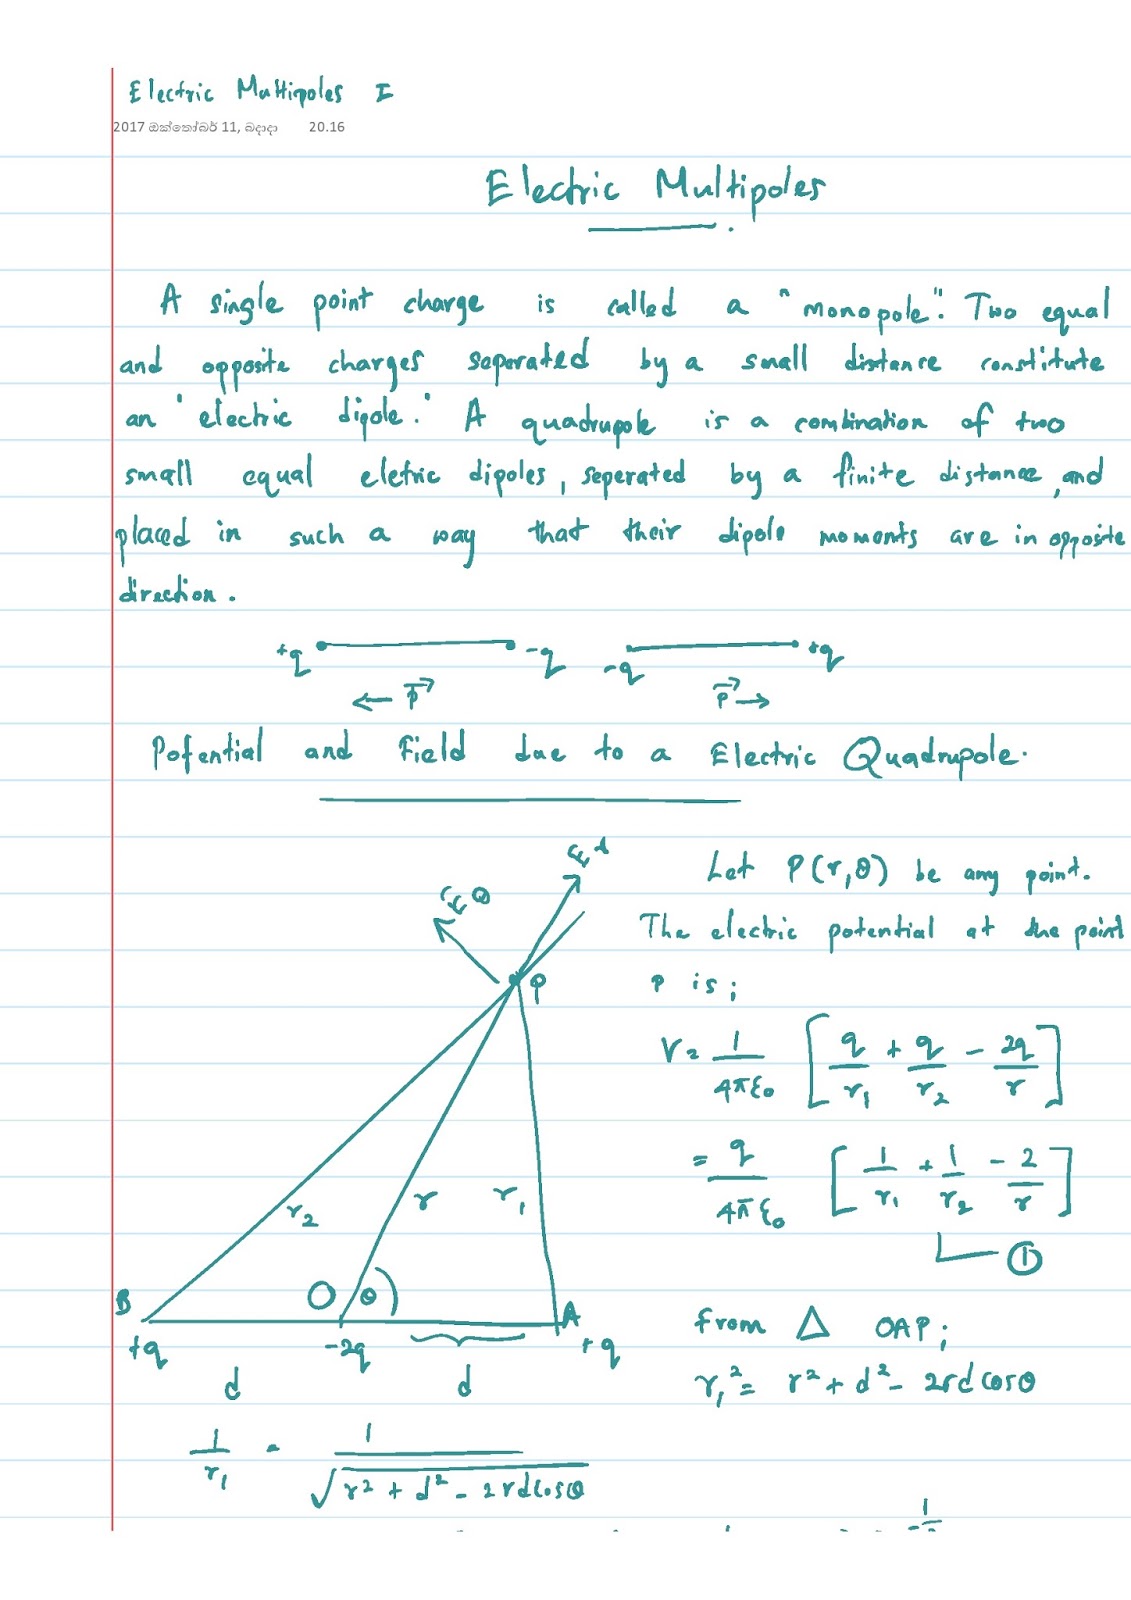 Electric Multipoles I
2017 ඔක්තෝබර් 11, බදාදා 20.16
Electric Multipoles
A single point charge is called a "monopole". Two equal
and opposite charges seperated by a small distance constitute
an 'electric dipole.' A quadrupole is a combination of two
small equal eletric dipoles, seperated by a finite distance, and
placed in such a way that their dipole moments are in opposite
direction.
+q -q -q +q
← p⃗ p⃗ →
Potential and Field due to a Electric Quadrupole.
Er
Eθ
P
Let P(r,θ) be any point.
The electric potential at the point
P is;
V = 1/4πε₀ [q/r₁ + q/r₂ - 2q/r]
= q/4πε₀ [1/r₁ + 1/r₂ - 2/r]
①
r₂ r r₁
B O θ A
+q -2q +q
d d
From △ OAP;
r₁² = r² + d² - 2rd cosθ
1/r₁ = 1/√(r² + d² - 2rd cosθ)